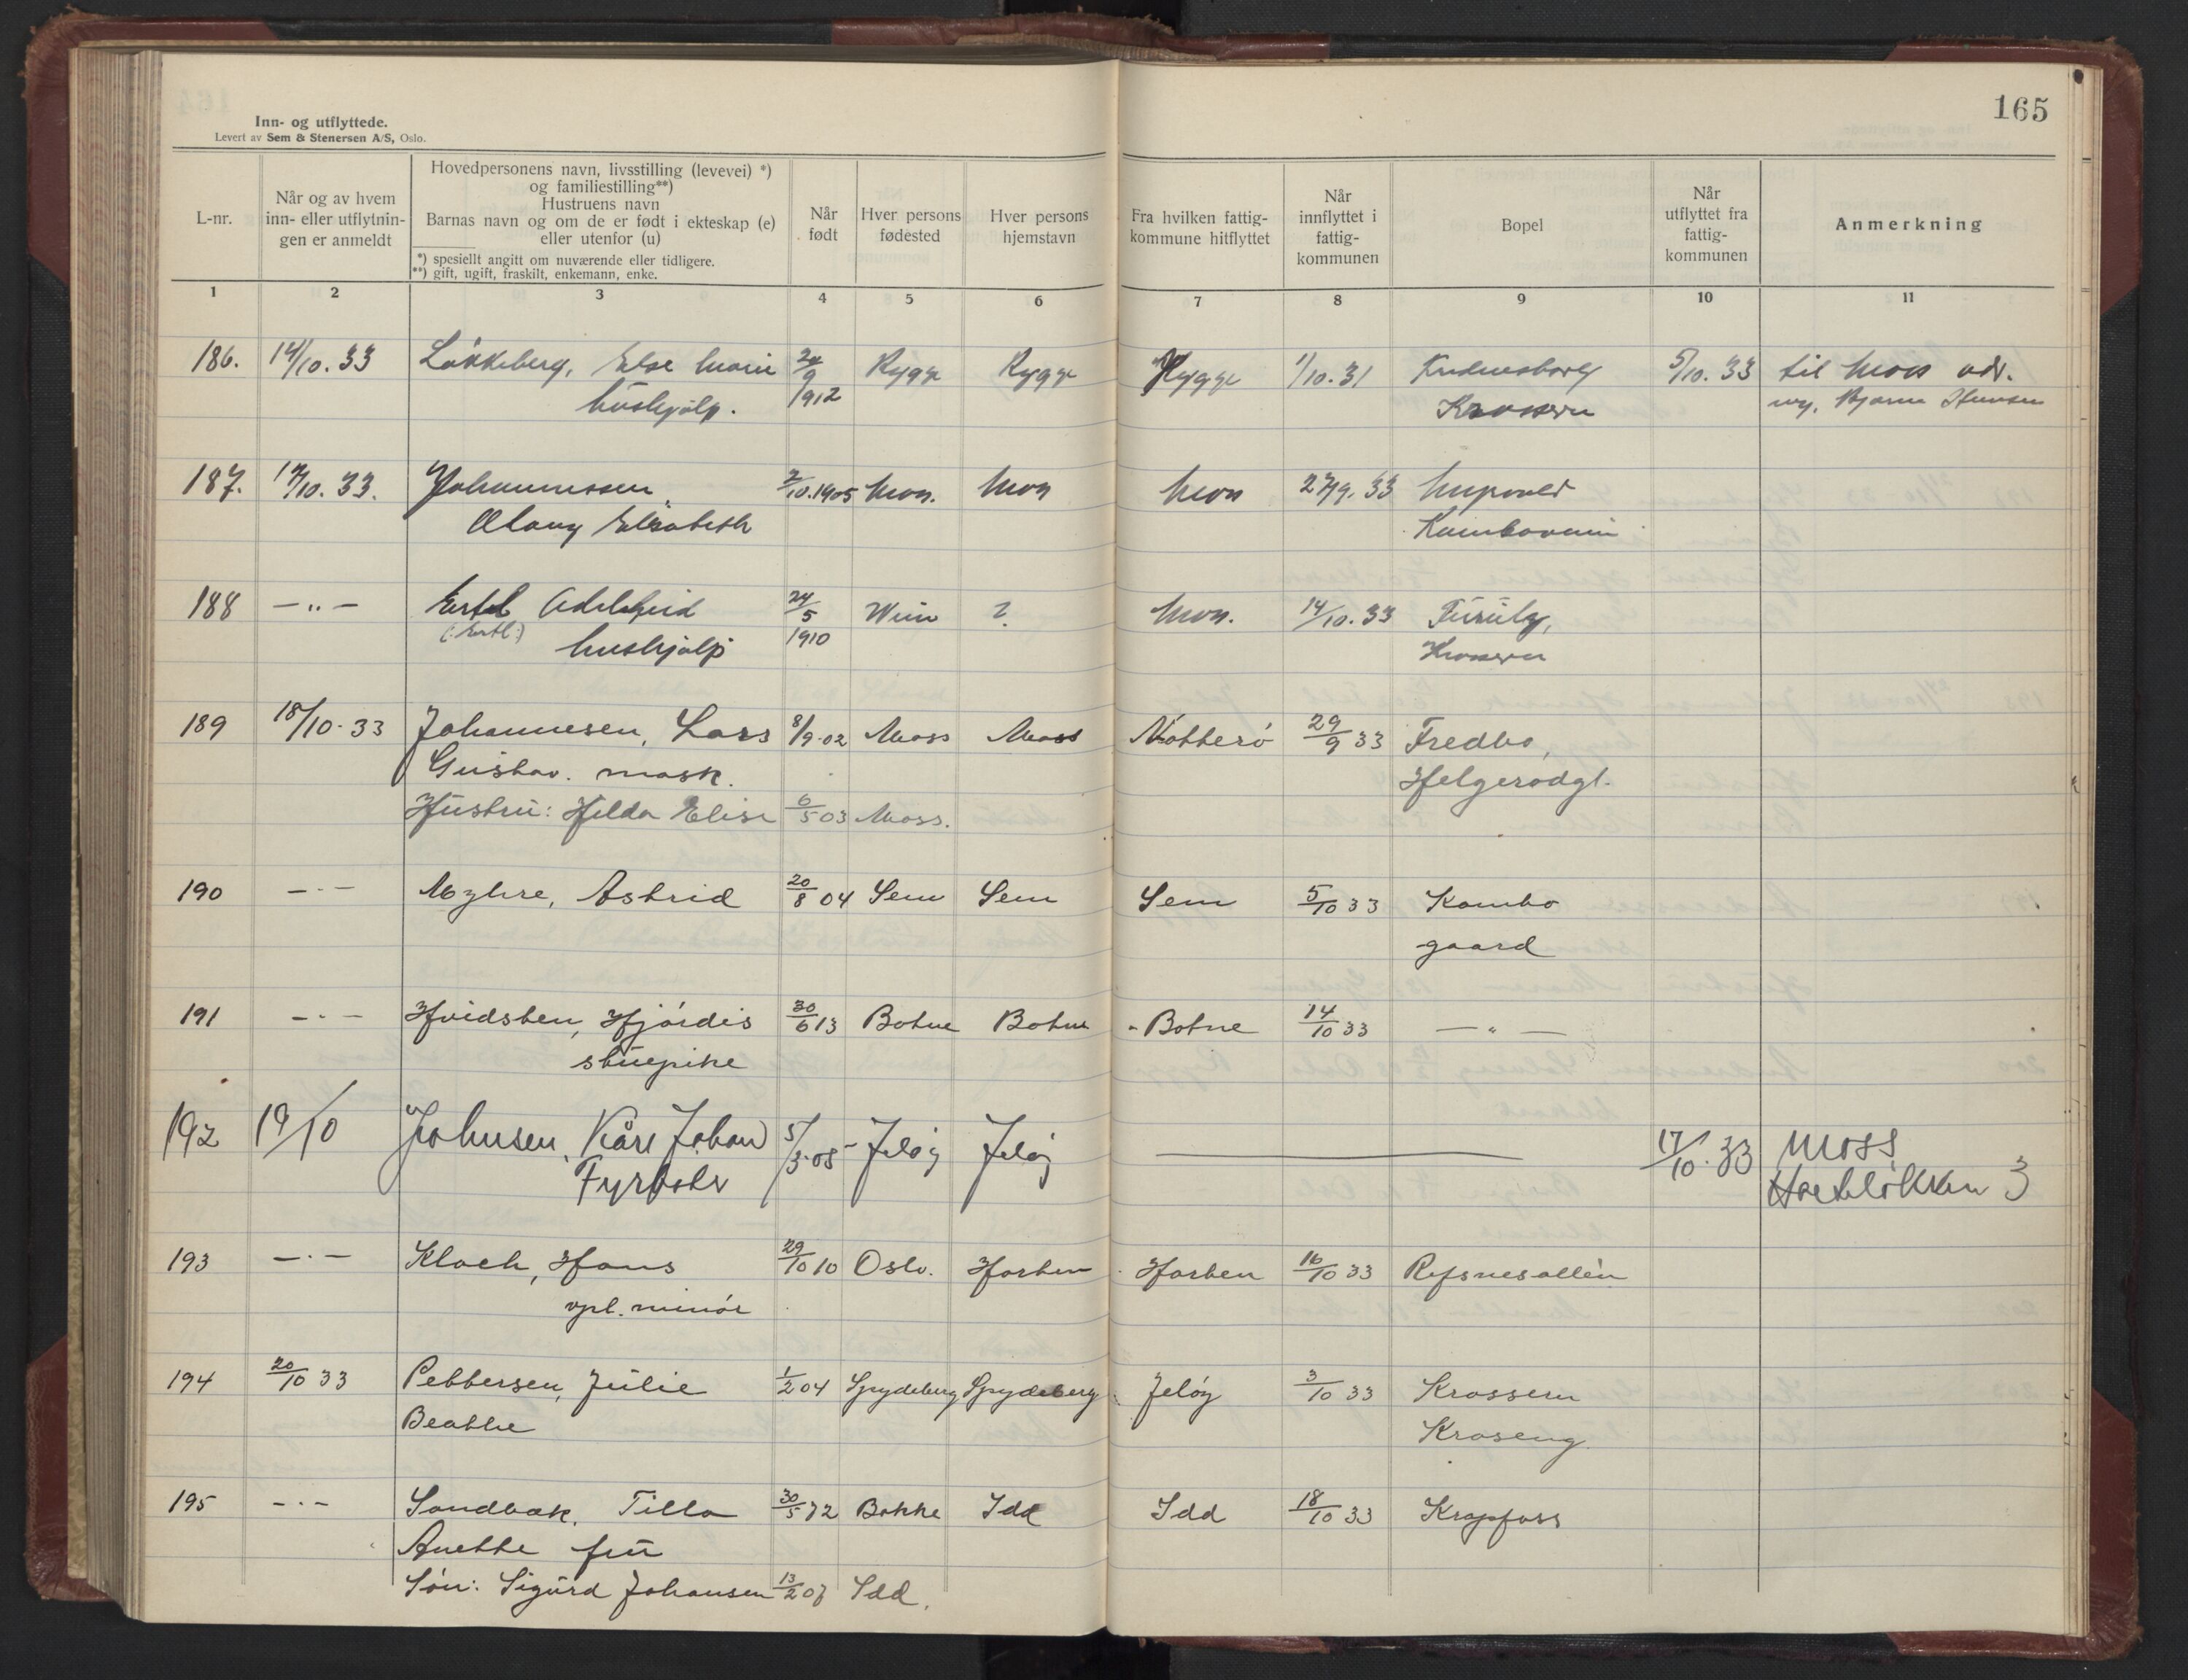 165
Inn- og utflyttede.
Levert av Sem & Stenersen A/S, Oslo.
L-nr.
Når og av hvem
inn- eller utflytnin-
gen er anmeldt
Hovedpersonens navn, livsstilling (levevei) *)
og familiestilling**)
Hustruens navn
Barnas navn og om de er født i ekteskap (e)
eller utenfor (u)
*) spesiellt angitt om nuværende eller tidligere.
**) gift, ugift, fraskilt, enkemann, enke.
Når
født
Hver persons
fødested
Hver persons
hjemstavn
Fra hvilken fattig-
kommune hitflyttet
Når
innflyttet i
fattig-
kommunen
Bopel
Når
utflyttet fra
fattig-
kommunen
Anmerkning
1 2 3 4 5 6 7 8 9 10 11
186. 14/10.33 Løkkeberg, Else Marie 24/9 Rygge Rygge Rygge 1/10.31 5/10.33 til Moss adr.
hushjelp. 1912 Krossern Bjarne Hansen
187. 17/10.33. Johannessen, 2/10.1905 Moss. Moss Moss 27/9.33
Elisabeth
188 —"— Ertel Adelheid 24/5 Wien ? Moss. 14/10.33 Furuly,
(:Ertl:) hushjelp 1910 Krossern
189 18/10-33 Johannesen, Lars 8/9-02 Moss Moss Nøtterø 29/9 33 Fredbo,
Gustav. mask. Helgerødgt.
Hustru: Hilda Elise 6/5 03 Moss.
190 —"— Myhre, Astrid 20/8 04 Sem Sem Sem 5/10 33 Kambo
gaard
191 —"— Hvidsten, Hjørdis 30/6 13 Botne Botne Botne 14/10 33 —"—
stuepike
192 19/10 Johnsen, Kåre Johan 5/3-08 Jeløy Jeløy — 17/10.33 Moss
Fyrbøter 3
193 —"— Kloch, Hans 29/10 10 Oslo. Horten Horten 16/10 33 Refsnesalléen
vpl. minør
194 20/10 33 Pettersen, Julie 1/2 04 Spydeberg Spydeberg Jeløy 3/10 33 Krossern
Beathe Kroseng
195 —"— Sandbæk, Tilla 30/5 72 Bakke Idd Idd 18/10 33 Krapfoss
Anette fru
Søn: Sigurd Johansen 13/2 07 Idd.